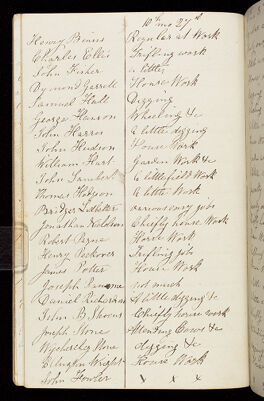 10th mo 27th
Henry Binns Regular at Work
Charles Ellis Trifling work
John Fisher a little
Dymond Garrett House Work
Samuel Hall Digging
George Hanson Wheeling &c
John Harris A little digging
John Hudson House Work
William Hart Garden Work &c
John Lambert A little field Work
Thomas Hodgson A little Work
Bridges various way jobs
Jonathan Chiefly house Work
Robert Payne House Work
Henry Peckover Trifling jobs
James Potter House Work
Joseph not much
Daniel Richardson A little digging &c
John B Chiefly house work
Joseph Stone Attending Cows &c
Wycherley Stone digging &c
Ellington Wright House Work
John Fowler x x x